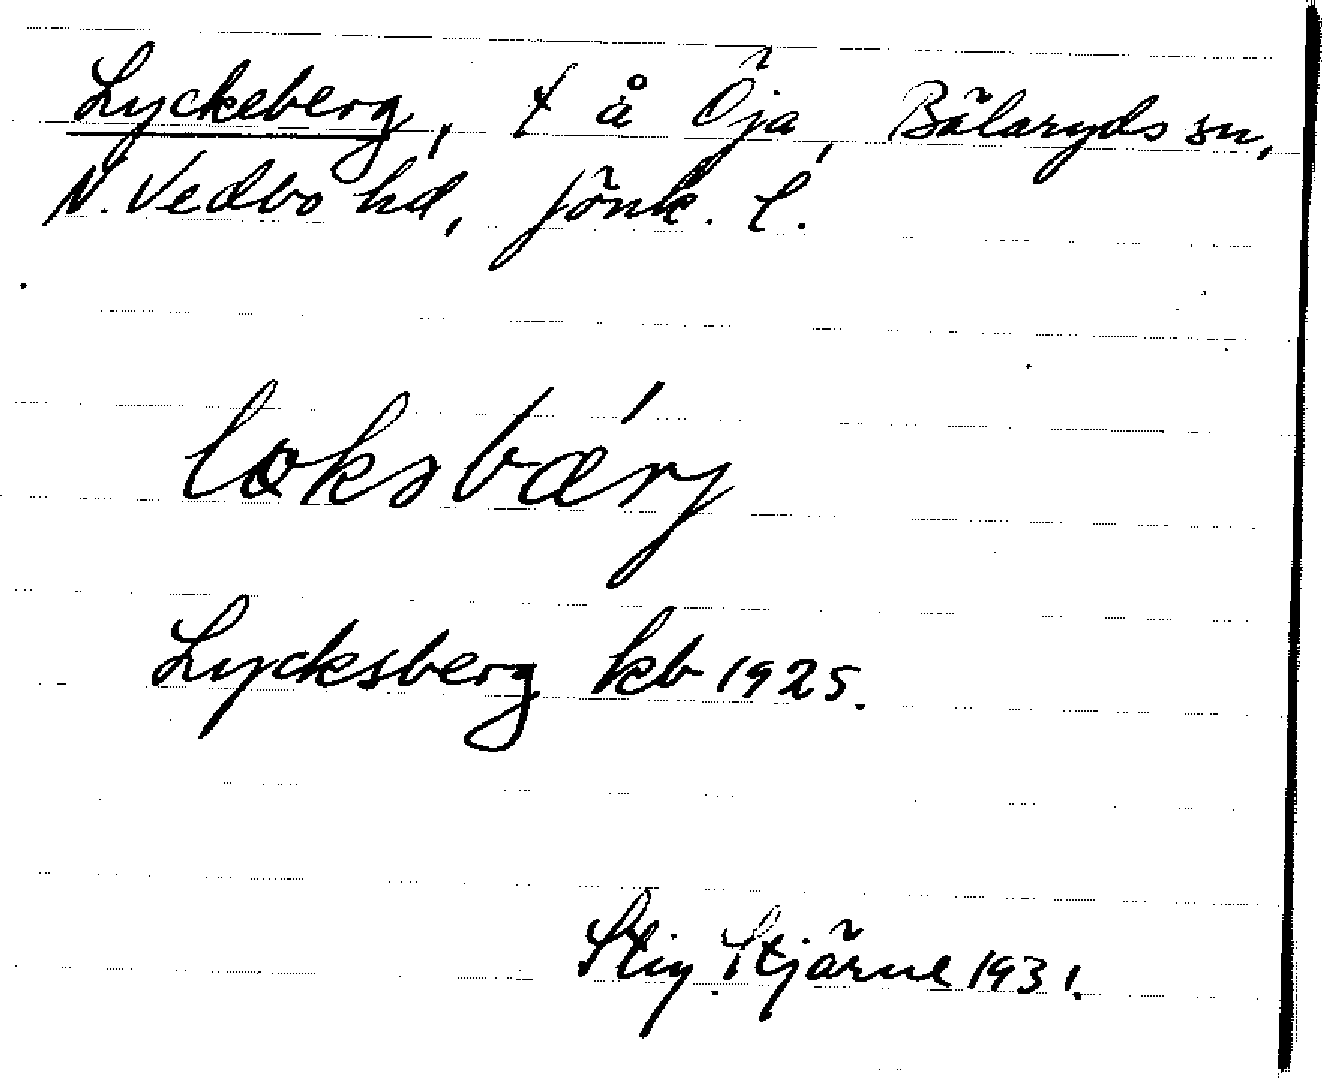 Lyckeberg, t å Öja, Bälaryds sn,
N. Vedbo hd, Jönk. l.
løksbæ´rj
Lycksberg kb 1925.
Stig Stjärne 1931.